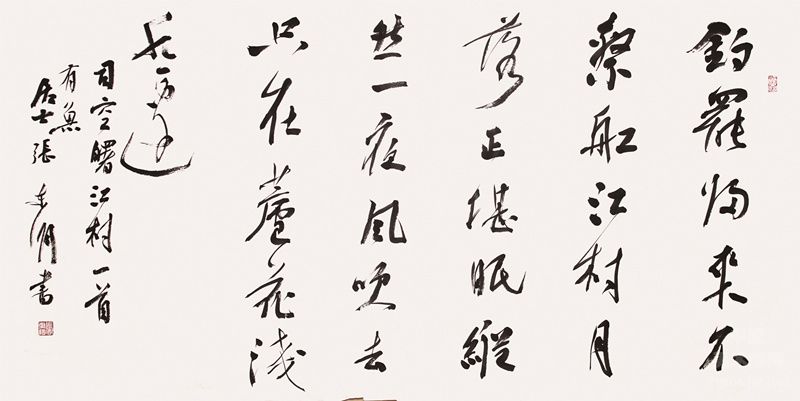 釣罷归来不
繫舡江村月
落正堪眠縱
然一夜風吹去
只在蘆花淺
水邊
司空曙江村一首
有魚
居士張書